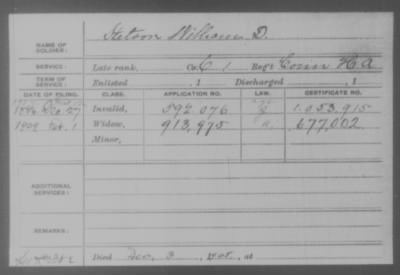 NAME OF SOLDIER: Stetson William D.
SERVICE: Late rank, Co. C 1 Reg't Conn H A
TERM OF SERVICE: Enlisted , 1 Discharged , 1
DATE OF FILING. CLASS. APPLICATION NO. LAW. CERTIFICATE NO.
27 Invalid, 592.076 1.053.915
1909 1 Widow, 913,975 677,002
Minor,
ADDITIONAL SERVICES:
REMARKS:
Died Dec, 3, 190 , at